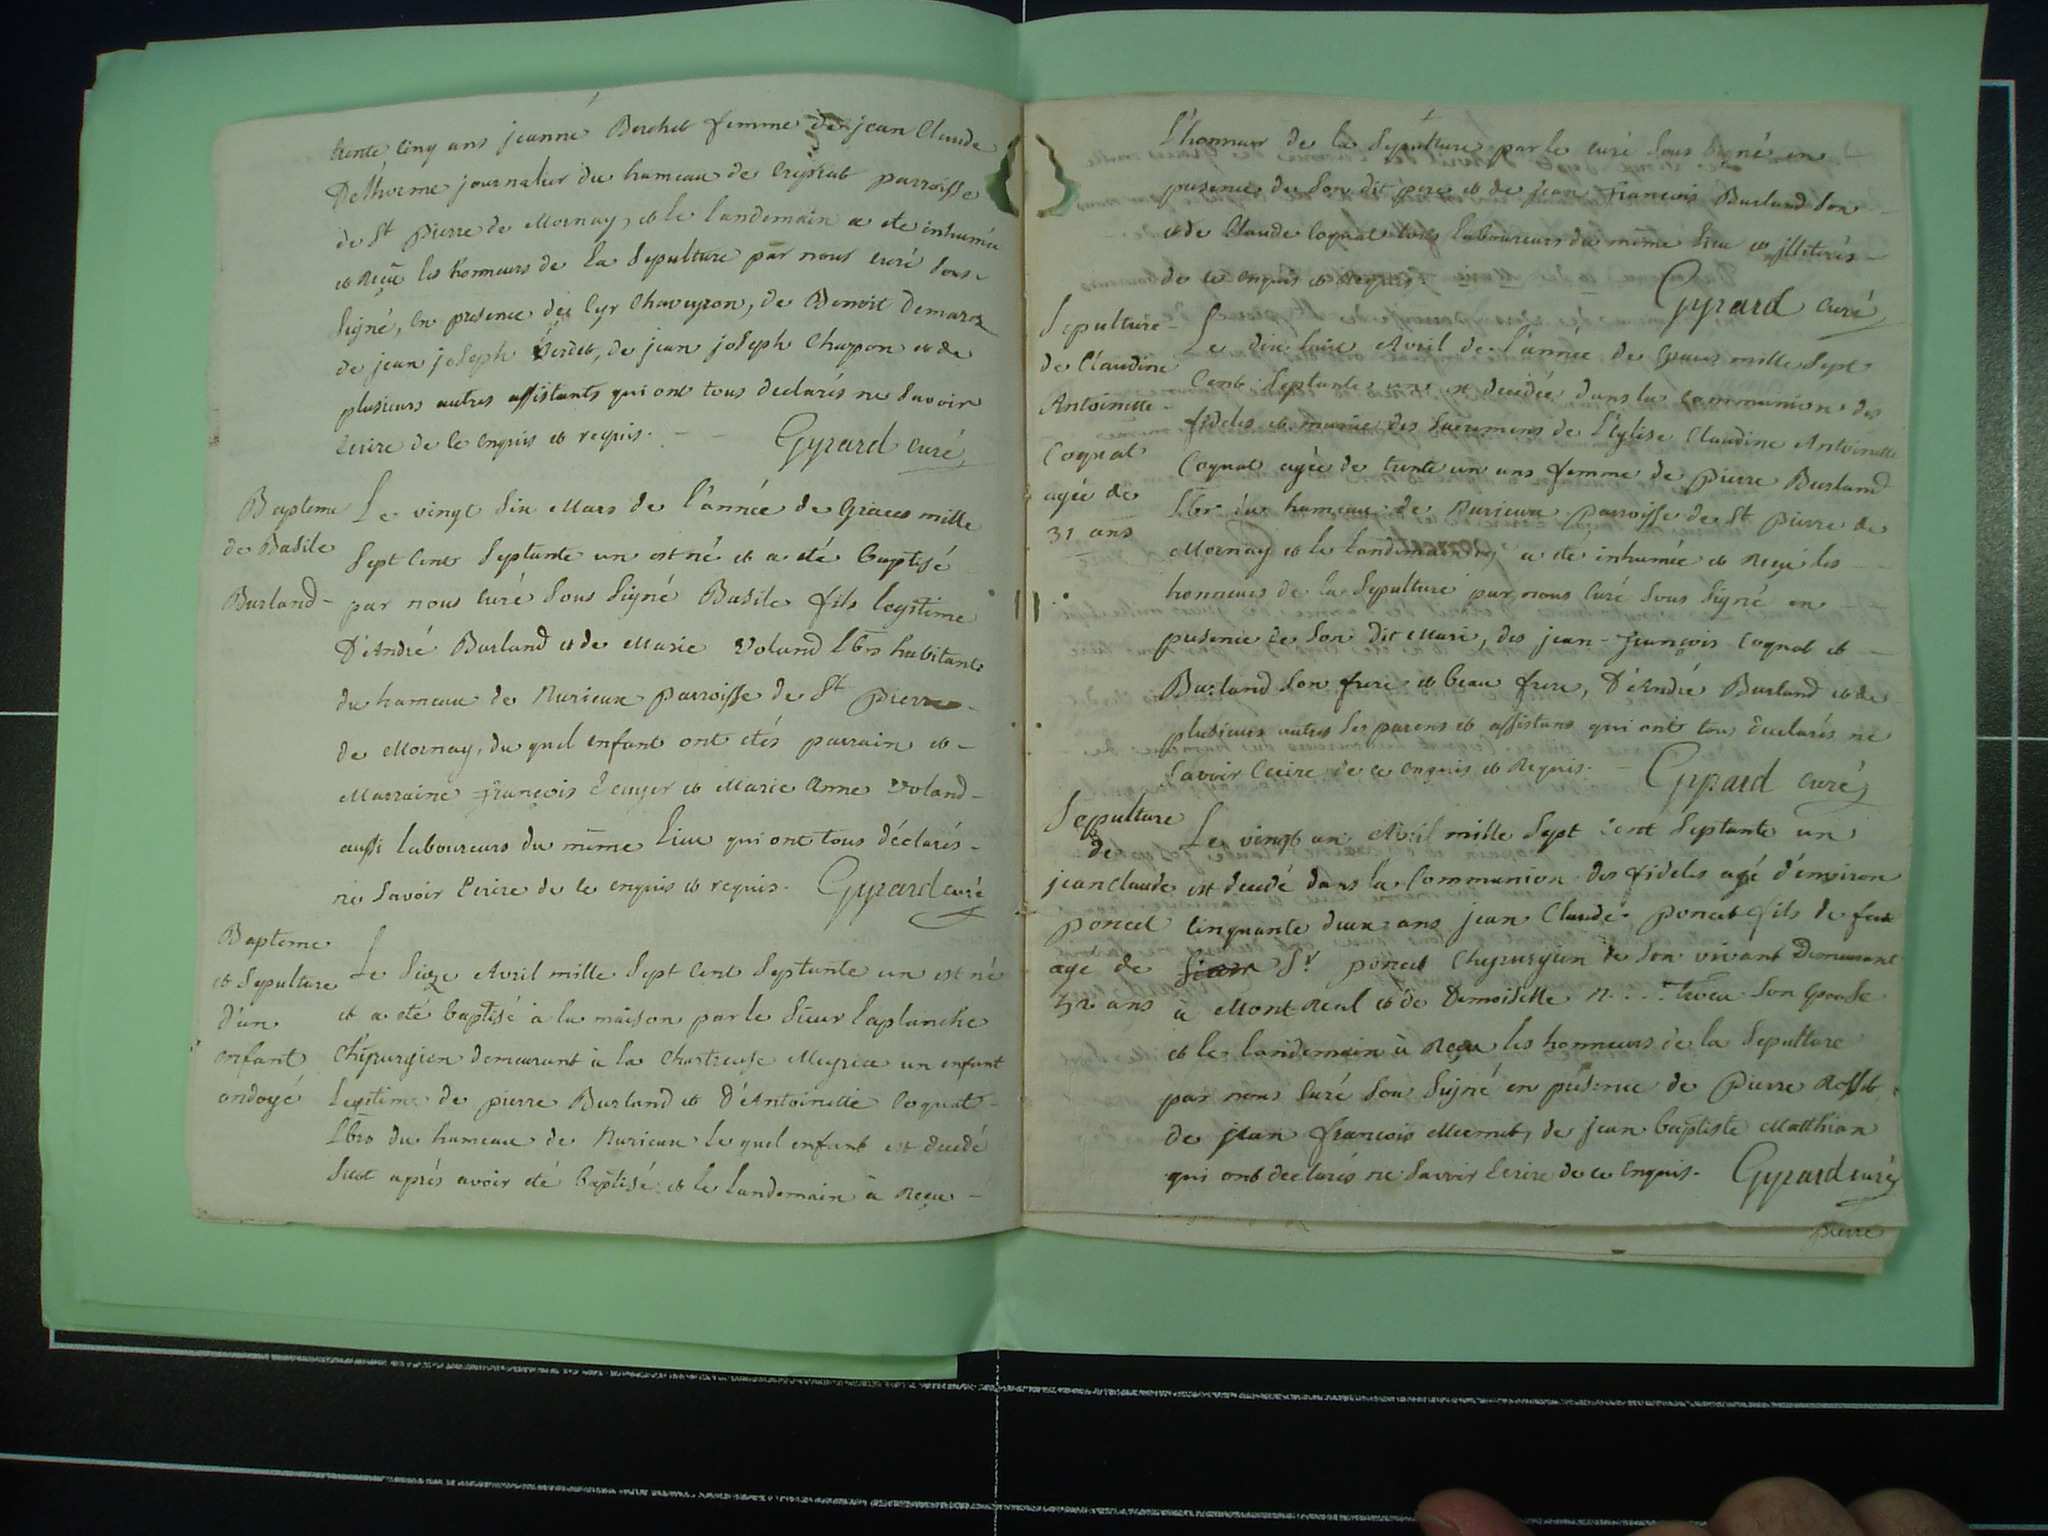 trente cinq ans jeanne Berchet femme de jean Claude
Delhorme journalier du hameau de Crepiat parroisse
de St pierre de Mornay, et le landemain a ete inhumée
et Reçu les honneurs de la Sepulture par nous curé sous-
signé, en presence de Cyr Chaveyron, de Benoit Demarez
de jean joseph Berdet, de jean joseph Chapon et de
plusieurs autres assistants qui ont tous declarés ne Savoir
Ecrire de ce enquis et requis. - - Gyrard curé
Bapteme
de Basile
Burland -
Le vingt Six Mars de l'année de Graces mille
Sept Cent Septante un est né et a eté baptisé
par nous curé Sous Signé Basile fils legitime
D'André Burland et de Marie Voland Lbrs habitants
du hameau de Nurieux parroisse de St pierre
de Mornay, du quel enfant ont étés parrain et -
Marraine françois Ecuyer et Marie Anne Voland -
aussi laboureurs du même Lieu qui ont tous déclarés -
ne Savoir Ecrire de ce enquis et requis. Gyrard curé
Bapteme
et Sepulture
d'un
enfant
ondoyé
Le Seize Avril mille Sept Cent Septante un est né
et a eté baptisé à la maison par le Sieur Laplanche
Chirurgien demeurant à la Chartreuse Meyria un enfant
Legitime de pierre Burland et D'Antoinette Cognat -
Lbrs du hameau de Nurieux le quel enfant est decedé
Suot aprés avoir eté baptisé et le Landemain à Reçu -
L'honneur de la Sepulture par le curé Sous Signé en
presence de Son dit pere et de jean françois Burland Son -
et de Claude Cognat tous laboureurs du même lieu et illiterés -
de ce enquis et Requis. Gyrard curé
Sepulture -
de Claudine
Antoinette -
Cognat
agée de
31 ans
Le dix huit Avril de l'année de Graces mille Sept
Cent Septante un est decedée dans la Communion des
fideles et munie des Sacremens de L'eglise Claudine Antoinette
Cognat agée de trente un ans femme de pierre Burland
Lbr du hameau de Nurieux parroisse de St pierre de
Mornay et le landemain a eté inhumée et Reçu les -
honneurs de la Sepulture par nous Curé Sous Signé en
presence de Son dit Mari, des jean-françois Cognat et -
Burland Son frere et beau frere, D'André Burland et de
plusieurs autres Ses parens et assistans qui ont tous declarés ne
Savoir Ecrire de ce enquis et Requis. - Gyrard curé
Sepulture
de
jean Claude
poncet
age de
52 ans
Le vingt un Avril mille Sept Cent Septante un
est decedé dans la Communion des fideles agé d'environ
cinquante deux ans jean Claude poncet fils de feu
Sr poncet Chirurgien de Son vivant Demeurant
à Mont Real et de Demoiselle N.... Son Epouse
et le landemain à Reçu les honneurs de la Sepulture
par nous Curé Sous Signé en présence de Pierre Rosset
de jean françois Mermet, de jean baptiste Matthian
qui ont declarés ne Savoir Ecrire de ce enquis. Gyrard curé
pierre